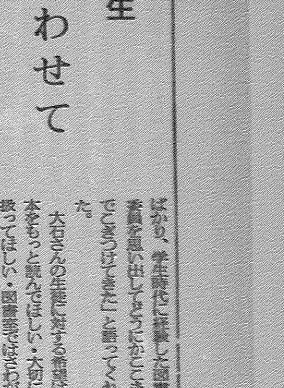 生
わせて
ばかり、学生時代に経験した図書
委員を思い出してどうにかこうに
でこぎつけてきた」と語ってくれ
た。
大石さんの生徒に対する希望は
本をもっと読んでほしい・大切に
扱ってほしい・図書室ではさわが